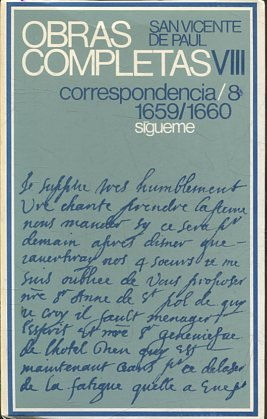 OBRAS
COMPLETAS VIII
SAN VICENTE
DE PAUL
correspondencia/8
1659/1660
sígueme
Je supplie tres humblement
Vre charite prendre la peine
nous mander sy ce sera pr
demain apres disner que
nos 4 soeurs Je me
suis oubliee de vous proposer
nre Sr Anne de St pol de quy
Je croy il fault menager
l'esprit et nre Sr geneviefue
de lhotel Dieu quy est
maintenant ceans pr ce delaser
de la fatigue quelle a